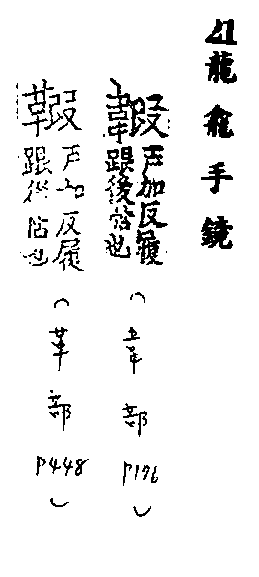 21龍龕手鏡
䪗戶加反履跟後帖也（韋部P176）
鞎戶加反履跟後帖也（革部P448）